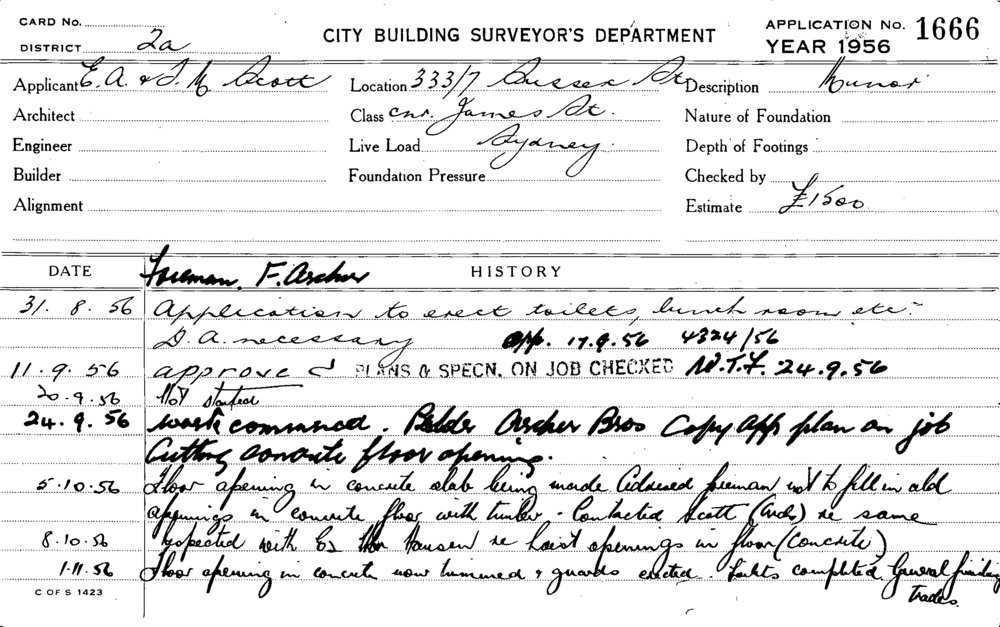 CARD No.
DISTRICT 2a
CITY BUILDING SURVEYOR'S DEPARTMENT
APPLICATION No. 1666
YEAR 1956
Applicant E. A. & T. M. Scott
Location 333/7 Sussex St
Description Minor
Architect
Class cnr. James St.
Nature of Foundation
Engineer
Live Load Sydney.
Depth of Footings
Builder
Foundation Pressure
Checked by
Alignment
Estimate £1500
DATE
Foreman. F. Archer
HISTORY
31. 8. 56 Application to erect toilets, lunch room etc.
D.A. necessary app. 17.9.56 4324/56
11. 9. 56 approved PLANS & SPECN. ON JOB CHECKED W.T.F. 24.9.56
20.9.56 Not started
24. 9. 56 work commenced. Archer Bros Copy app plan on job
Cutting concrete floor opening.
5.10.56 Floor opening in concrete slab being made. Advised foreman not to fill in old
openings in concrete floor with timber. Contacted Scott (Archs) re same
8.10.56 Inspected with Hansen re hoist openings in floor (concrete)
1.11.56 Floor opening in concrete now trimmed & guards erected. completed. General finishing
trades.
C OF S 1423